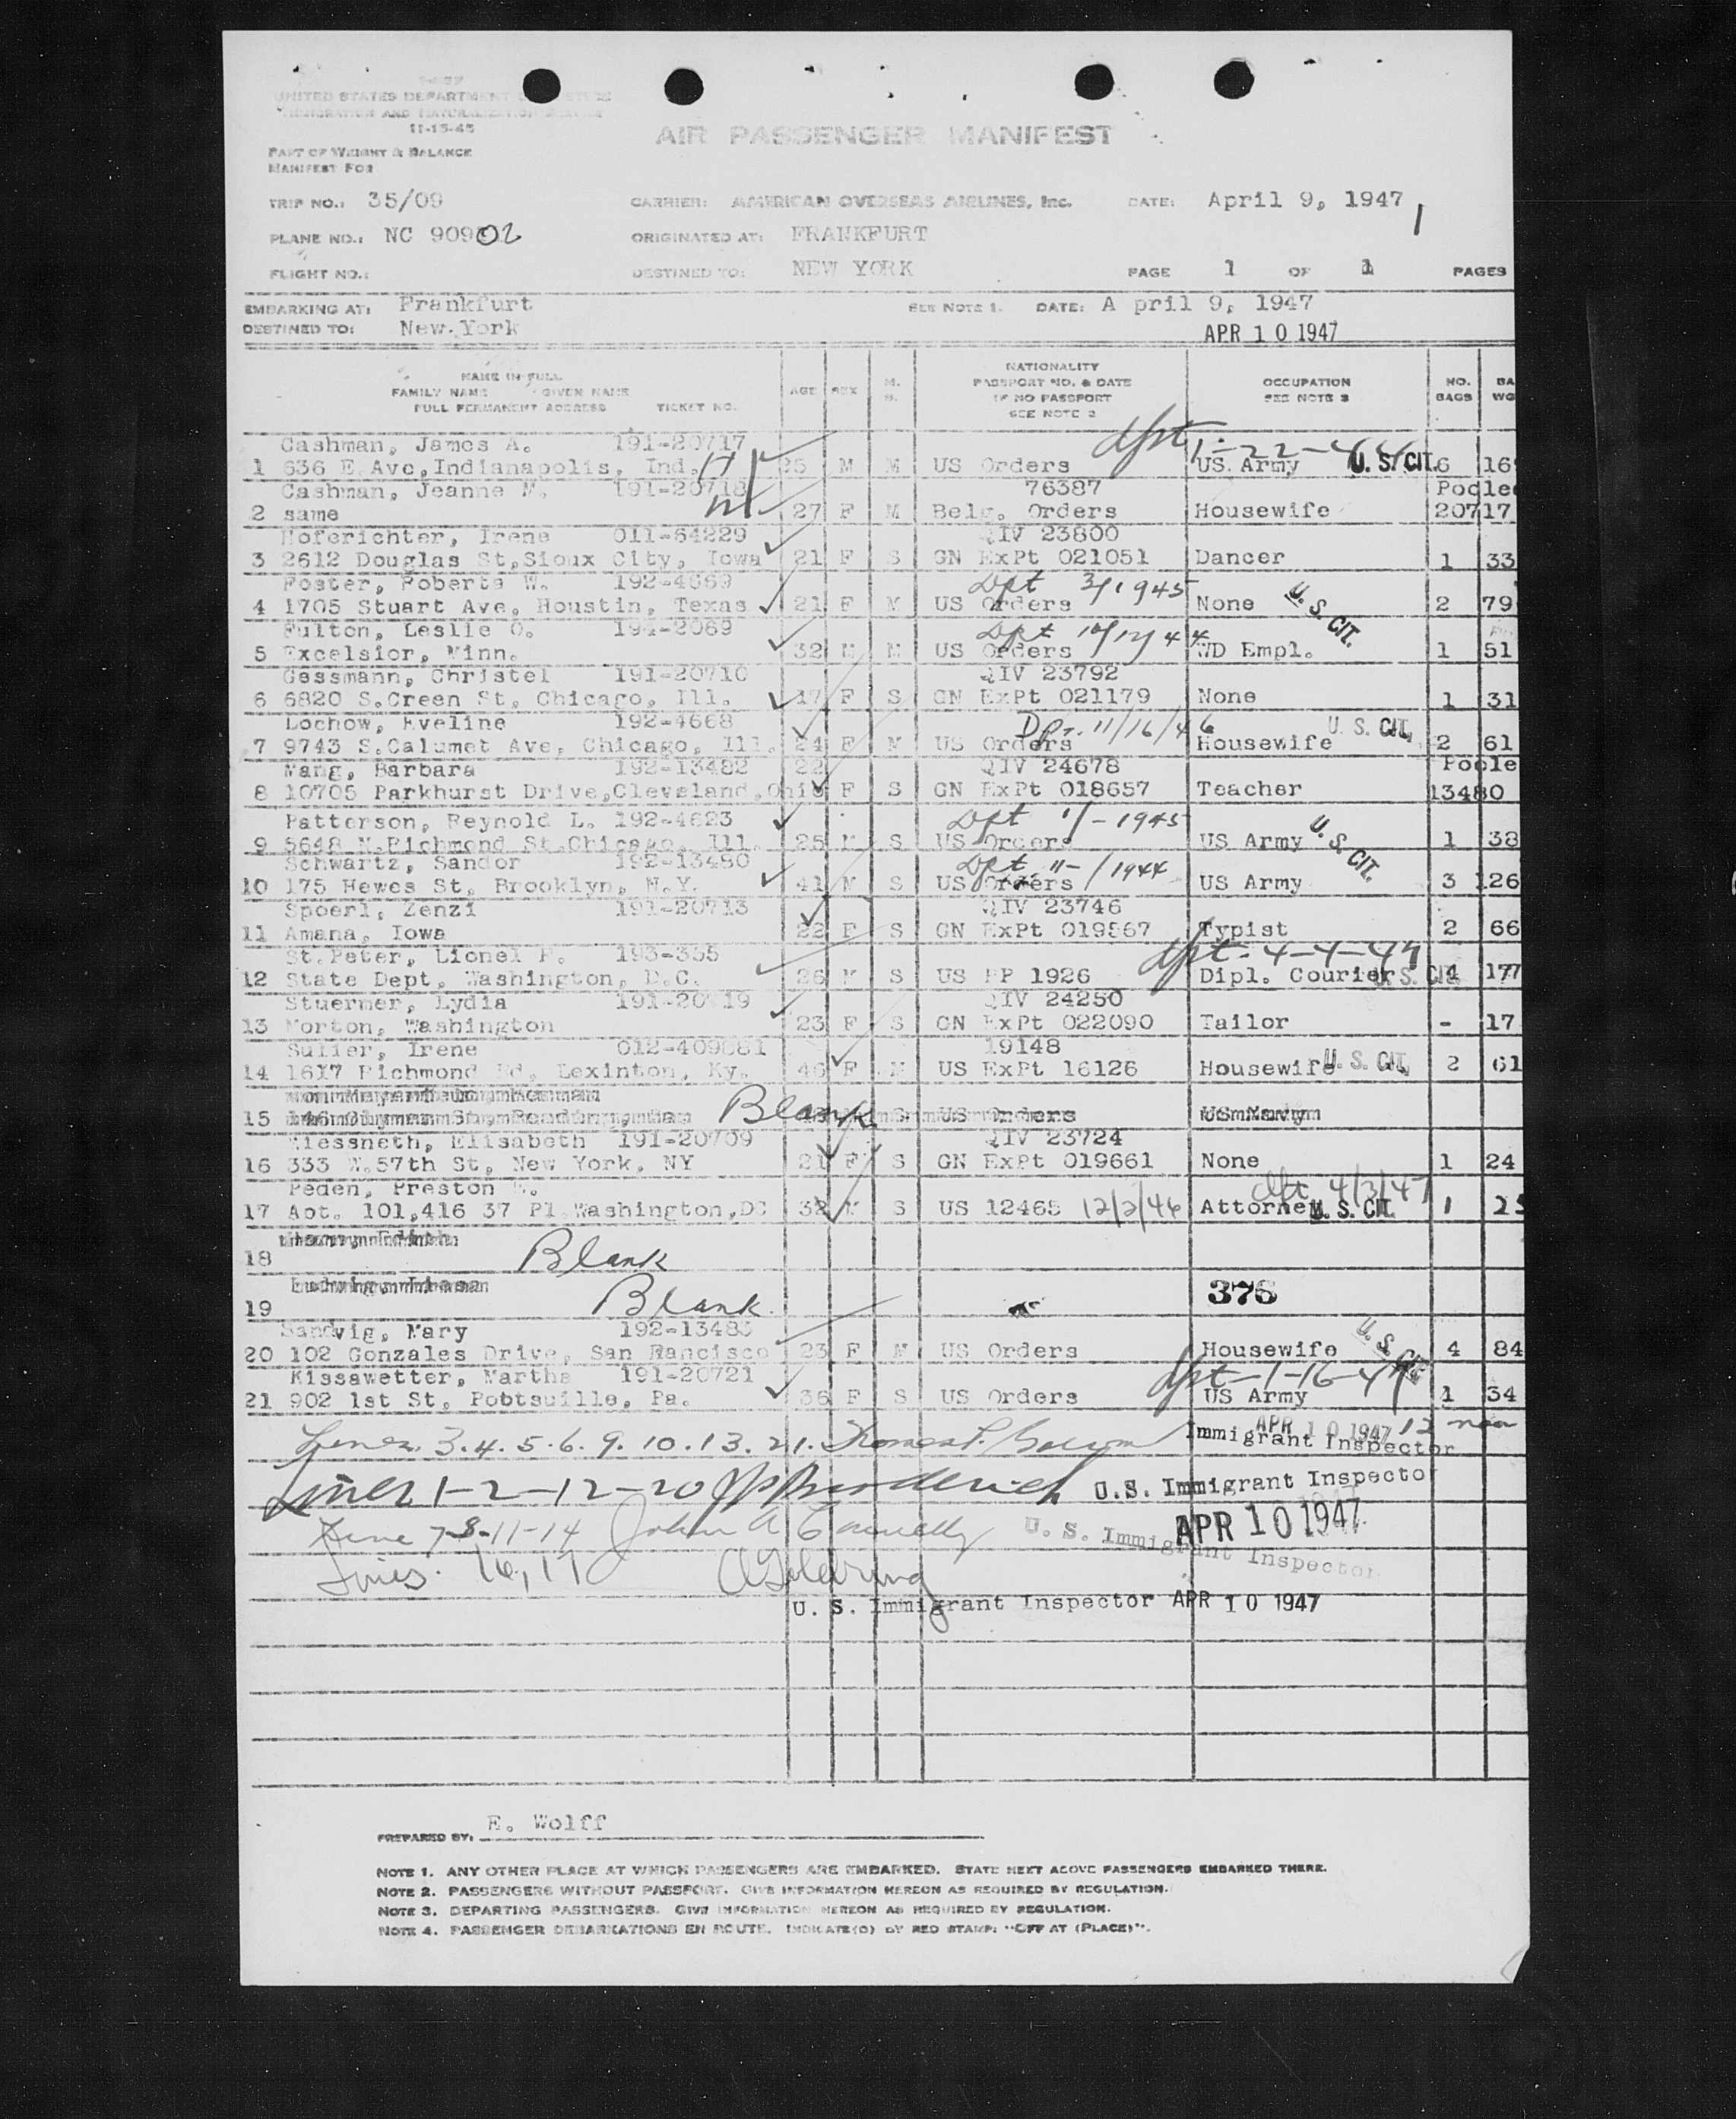 UNITED STATES DEPARTMENT
11-15-45
AIR PASSENGER MANIFEST
PART OF WEIGHT & BALANCE
MANIFEST FOR
TRIP NO.: 35/09 CARRIER: AMERICAN OVERSEAS AIRLINES, Inc. DATE: April 9, 1947
PLANE NO.: NC 909 02 ORIGINATED AT: FRANKFURT
FLIGHT NO.: DESTINED TO: NEW YORK PAGE 1 OF 1 PAGES
EMBARKING AT: Frankfurt SEE NOTE 1. DATE: A pril 9, 1947
DESTINED TO: New York APR 10 1947
NAME IN FULL
FAMILY NAME GIVEN NAME
FULL PERMANENT ADDRESS TICKET NO.
AGE SEX M. S.
NATIONALITY
PASSPORT NO. & DATE
IF NO PASSPORT
SEE NOTE 2
OCCUPATION
SEE NOTE 3
NO. BAGS
BA WG
Cashman, James A. 191-20717 dpt 1-22-
1 636 E. Ave, Indianapolis, Ind. 25 M M US Orders US Army U.S. CIT. 6 16
Cashman, Jeanne M. 191-20718 76387 Poole
2 same 27 F M Belg. Orders Housewife 20717
Hoferichter, Irene 011-64229 QIV 23800
3 2612 Douglas St, Sioux City, Iowa 21 F S GN ExPt 021051 Dancer 1 33
Foster, Roberta W. 192-4669 Dpt 3/1945
4 1705 Stuart Ave, Houstin, Texas 21 F M US Orders None U.S. CIT. 2 79
Fulton, Leslie O. 192-2069 Dpt
5 Excelsior, Minn. 32 M M US Orders WD Empl. 1 51
Gessmann, Christel 191-20710 QIV 23792
6 6820 S.Green St, Chicago, Ill. 17 F S GN ExPt 021179 None 1 31
Lochow, Eveline 192-4668 Dpt. 11/16/46 U. S. CIT.
7 9743 S.Calumet Ave, Chicago, Ill. 24 F M US Orders Housewife 2 61
Mang, Barbara 192-13482 22 QIV 24678 Poole
8 10705 Parkhurst Drive,Cleveland,Ohio F S GN ExPt 018657 Teacher 13480
Patterson, Reynold L. 192-4623 Dpt 1/-1945
9 5648 N.Richmond St.Chicago, Ill. 25 M S US Orders US Army U.S. CIT. 1 38
Schwartz, Sandor 192-13480 Dpt 11-/1944
10 175 Hewes St, Brooklyn, N.Y. 41 M S US Orders US Army 3 126
Spoerl, Zenzi 191-20713 QIV 23746
11 Amana, Iowa 22 F S GN ExPt 019567 Typist 2 66
St.Peter, Lionel F. 193-355 dpt-4-4-47
12 State Dept, Washington, D.C. 26 M S US PP 1926 Dipl. Courier U.S. CIT. 4 177
Stuermer, Lydia 191-20719 QIV 24250
13 Morton, Washington 23 F S GN ExPt 022090 Tailor - 17
Sulier, Irene 19148
14 1617 Richmond Rd, Lexinton, Ky. 46 F M US ExPt 16126 Housewife U. S. CIT. 2 61
15 Blank US Orders US Navy
Elisabeth 191-20709 QIV 23724
16 333 W.57th St, New York, NY 21 F S GN ExPt 019661 None 1 24
Peden, Preston E. dpt 4/3/47
17 Apt. 101,416 37 Pl.Washington,DC 32 M S US 12465 12/2/46 Attorney U. S. CIT. 1 25
18 Blank
19 Blank 376
Sandvig, Mary 192-13483
20 102 Gonzales Drive, San Rancisco 23 F M US Orders Housewife U.S. CIT. 4 84
Kissawetter, Martha 191-20721 dpt-1-16-47
21 902 1st St, Pobtsuille, Pa. 36 F S US Orders US Army 1 34
Lines. 3.4.5.6.9.10.13.21. Immigrant Inspector APR 10 1947 12 noon
Lines 1-2-12-20 U.S. Immigrant Inspector
Line 7-8-11-14 John A U. S. Immigrant Inspector APR 10 1947
Lines. 16, 17
U. S. Immigrant Inspector APR 10 1947
PREPARED BY: E. Wolff
NOTE 1. ANY OTHER PLACE AT WHICH PASSENGERS ARE EMBARKED. STATE NEXT ABOVE PASSENGERS EMBARKED THERE.
NOTE 2. PASSENGERS WITHOUT PASSPORT. GIVE INFORMATION HEREON AS REQUIRED BY REGULATION.
NOTE 3. DEPARTING PASSENGERS. GIVE INFORMATION HEREON AS REQUIRED BY REGULATION.
NOTE 4. PASSENGER DEBARKATIONS EN ROUTE. INDICATE(D) BY RED STAMP: "OFF AT (PLACE)".